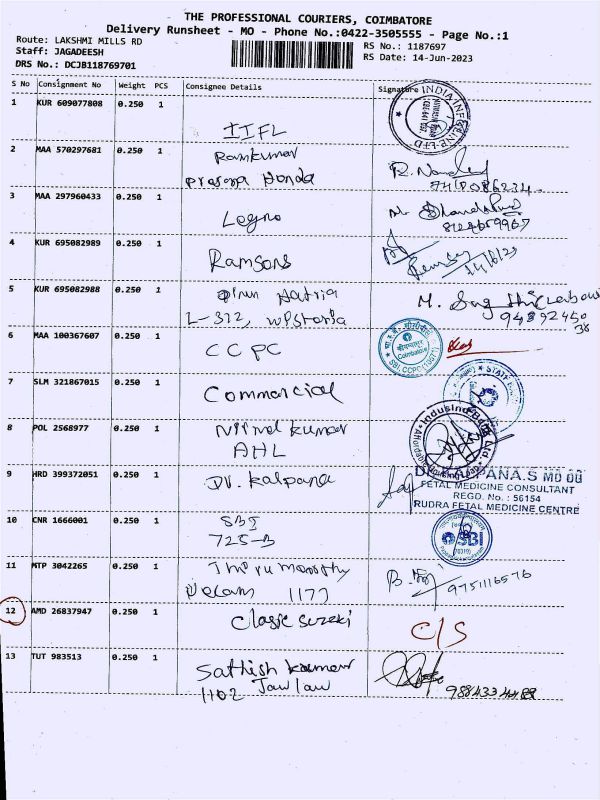 THE PROFESSIONAL COURIERS, COIMBATORE
Delivery Runsheet - MO - Phone No.:0422-3505555 - Page No.:1
Route: LAKSHMI MILLS RD
RS No.: 1187697
Staff: JAGADEESH
RS Date: 14-Jun-2023
DRS No.: DCJB118769701
S No Consignment No Weight PCS Consignee Details Signature
1 KUR 609077808 0.250 1
IIFL
INDIA INFOLINE LTD
2 MAA 570297681 0.250 1 Ramkumar
Prasanna Honda
3 MAA 297960433 0.250 1
Legno
4 KUR 695082989 0.250 1
Ramsons
5 KUR 695082988 0.250 1
L-312,
6 MAA 100367607 0.250 1
CCPC
Coimbatore
SBI, CCPC
7 SLM 321867015 0.250 1
Commercial
STATE
8 POL 2568977 0.250 1 Nirmal kumar
AHL
IndusInd Bank Ltd.
9 HRD 399372051 0.250 1
Dr. Kalpana
DR. KALPANA.S MD OG
FETAL MEDICINE CONSULTANT
REGD. No. : 56154
RUDRA FETAL MEDICINE CENTRE
10 CNR 1666001 0.250 1 SBI
725-B
SBI
11 MTP 3042265 0.250 1 Thirumoorthy
1177
9751116576
12 AMD 26837947 0.250 1 Classic suzeki
C/S
13 TUT 983513 0.250 1
Sathish kumar
1102 Jawlaw